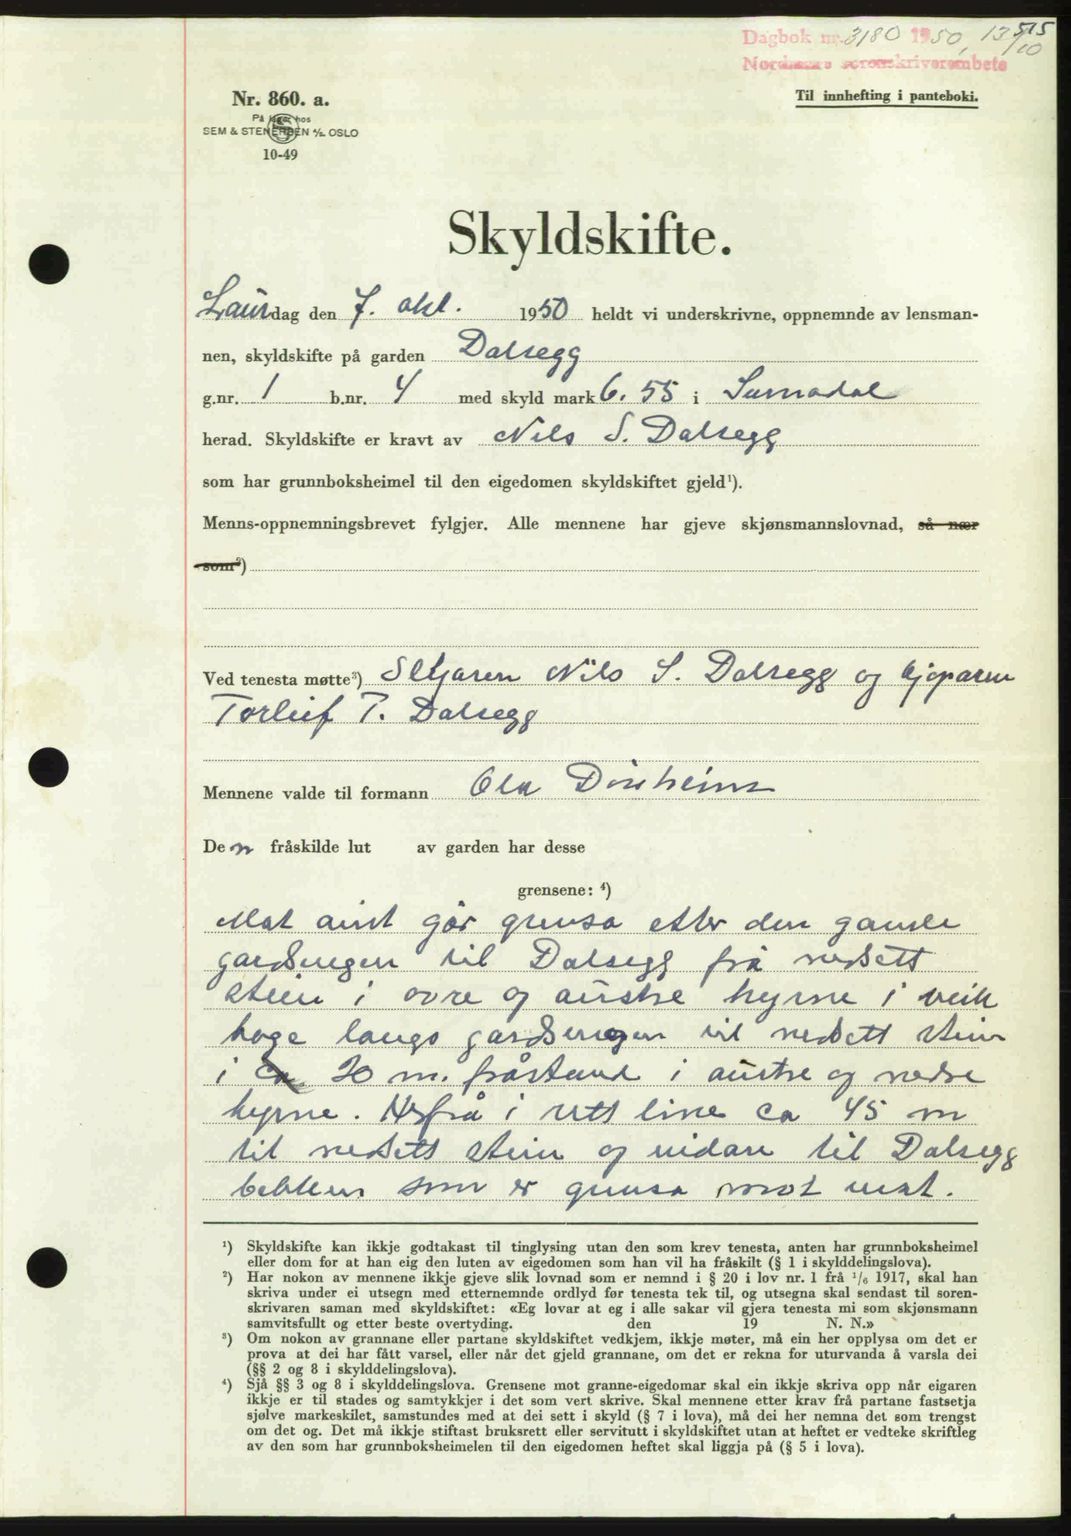 515
Dagbok nr. 3180 1950, 13/10
Nordmøre sorenskriverembete
Nr. 860. a.
Til innhefting i panteboki.
På lager hos
SEM & STENERSEN A/S OSLO
10-49
Skyldskifte.
Laurdag den 7. okt. 1950 heldt vi underskrivne, oppnemnde av lensman-
nen, skyldskifte på garden Dalsegg
g.nr. 1 b.nr. 4 med skyld mark 6.55 i Surnadal
herad. Skyldskifte er kravt av Nils S. Dalsegg
som har grunnboksheimel til den eigedomen skyldskiftet gjeld¹).
Menns-oppnemningsbrevet fylgjer. Alle mennene har gjeve skjønsmannslovnad, så nær
som²)
Ved tenesta møtte³) Seljaren Nils S. Dalsegg og kjøparen
Torleif T. Dalsegg
Mennene valde til formann Ola Dønheim
Den fråskilde lut av garden har desse
grensene: ⁴)
Mot aust går grensa etter den gamle
gardsvegen til Dalsegg frå nedsett
stein i øvre og austre hyrne i veik
hage langs gardsvegen til nedsett stein
i ca. 20 m. fråstand i austre og nedre
hyrne. Herfrå i rett line ca 45 m
til nedsett stein og vidare til Dalsegg
bekken som er grensa mot vest.
¹) Skyldskifte kan ikkje godtakast til tinglysing utan den som krev tenesta, anten har grunnboksheimel
eller dom for at han eig den luten av eigedomen som han vil ha fråskilt (§ 1 i skylddelingslova).
²) Har nokon av mennene ikkje gjeve slik lovnad som er nemnd i § 20 i lov nr. 1 frå 1/6 1917, skal han
skriva under ei utsegn med etternemnde ordlyd før tenesta tek til, og utsegna skal sendast til soren-
skrivaren saman med skyldskiftet: «Eg lovar at eg i alle sakar vil gjera tenesta mi som skjønsmann
samvitsfullt og etter beste overtyding. den 19 N. N.»
³) Om nokon av grannane eller partane skyldskiftet vedkjem, ikkje møter, må ein her opplysa om det er
prova at dei har fått varsel, eller når det gjeld grannane, om det er rekna for uturvanda å varsla dei
(§§ 2 og 8 i skylddelingslova).
⁴) Sjå §§ 3 og 8 i skylddelingslova. Grensene mot granne-eigedomar skal ein ikkje skriva opp når eigaren
ikkje er til stades og samtykkjer i det som vert skrive. Skal mennene etter krav frå partane fastsetja
sjølve markeskilet, samstundes med at dei sett i skyld (§ 7 i lova), må dei her nemna det som trengst
om det og. Det må ikkje stiftast bruksrett eller servitutt i skyldskiftet utan at heftet er vedteke skriftleg
av den som har grunnboksheimelen til den eigedomen heftet skal liggja på (§ 5 i lova).